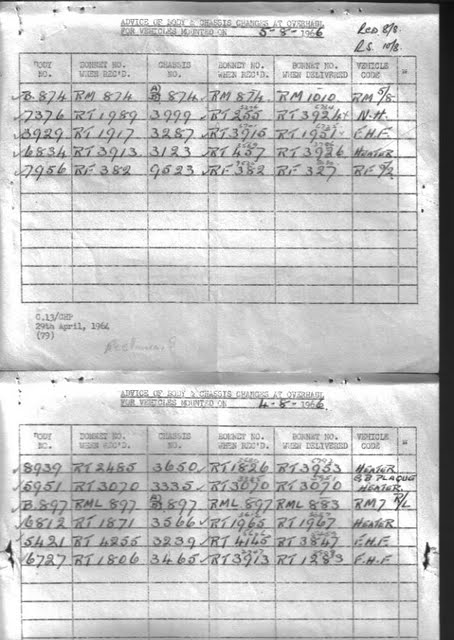 ADVICE OF BODY & CHASSIS CHANGES AT OVERHAUL
FOR VEHICLES MOUNTED ON 5-8-1966
RCD 8/8
R.S. 10/8
BODY NO. BONNET NO. WHEN REC'D. CHASSIS NO. BONNET NO. WHEN REC'D. BONNET NO. WHEN DELIVERED VEHICLE CODE
B.874 RM 874 B 874 RM 874 RM 1010 RM 5/8
7376 RT 1989 3999 RT 255 RT 3924 N.H.
3929 RT 1917 3287 RT 3915 RT 1951 F.H.F.
6834 RT 3913 3123 RT 457 RT 3926 HEATER
7956 RF 382 9523 RF 382 RF 327
C.13/CHP
29th April, 1964
(79)
ADVICE OF BODY & CHASSIS CHANGES AT OVERHAUL
FOR VEHICLES MOUNTED ON 4-8-1966
BODY NO. BONNET NO. WHEN REC'D. CHASSIS NO. BONNET NO. WHEN REC'D. BONNET NO. WHEN DELIVERED VEHICLE CODE
8939 RT 2485 3650 RT 1826 RT 3953 HEATER
5951 RT 3070 3335 RT 3070 RT 3070 G.B PLAQUE HEATER
B.897 RML 897 B 897 RML 897 RML 883 RM7 R/L
6812 RT 1871 3566 RT 1965 RT 1967 HEATER
5421 RT 4255 3239 RT 4145 RT 3847 F.H.F.
6727 RT 1806 3465 RT 3913 RT 1283 F.H.F.